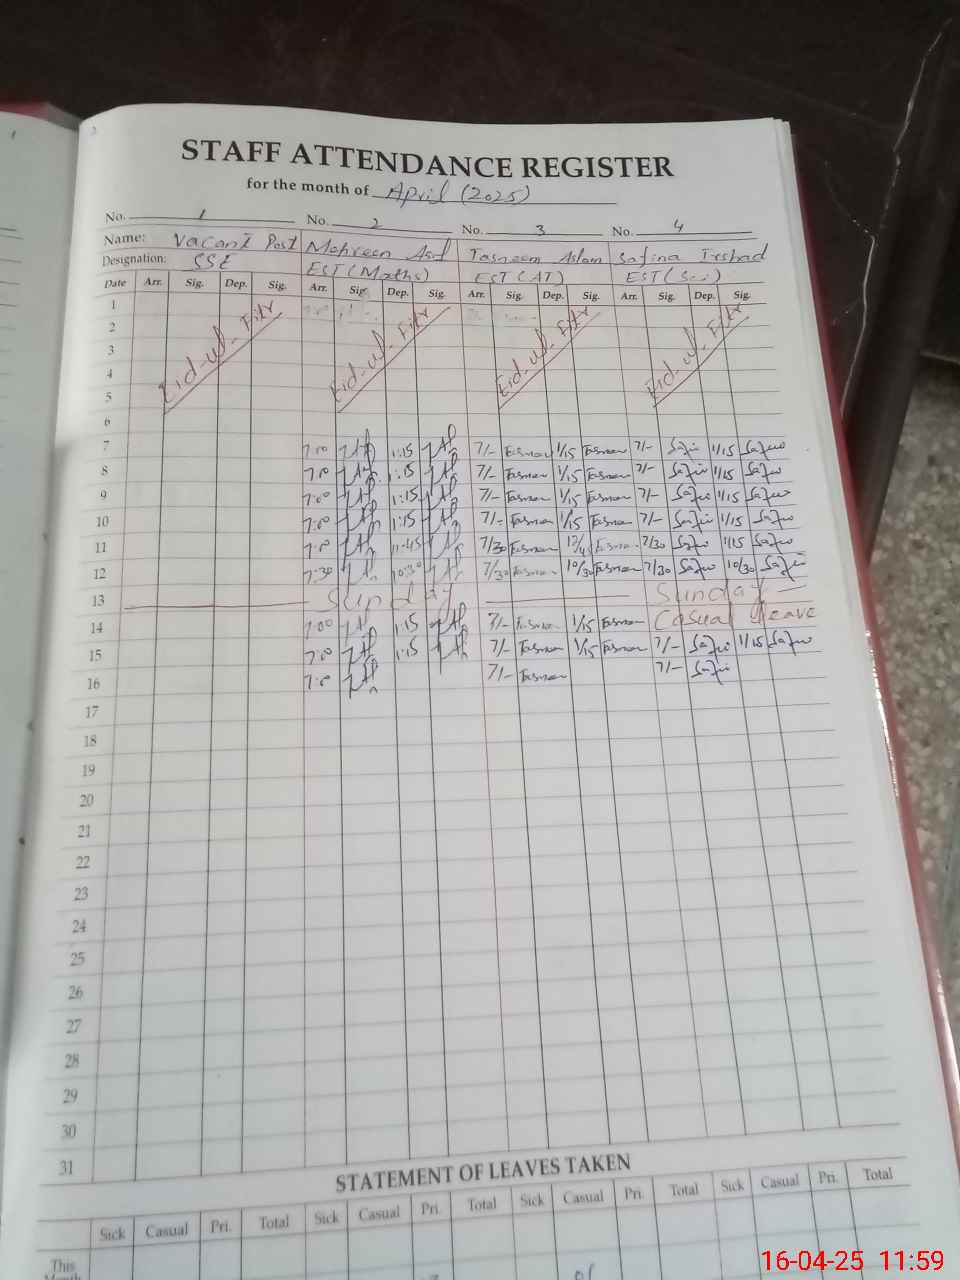 2
STAFF ATTENDANCE REGISTER
for the month of April (2025)
No. 1 No. 2 No. 3 No. 4
Name: Vacant Post Mehreen Asif Tasneem Aslam Safina Irshad
Designation: SSE EST (Maths) EST (AT) EST (Sci)
Date Arr. Sig. Dep. Sig. Arr. Sig. Dep. Sig. Arr. Sig. Dep. Sig. Arr. Sig. Dep. Sig.
1
2
3
4
5
Eid-ul-Fitr Eid-ul-Fitr Eid-ul-Fitr Eid-ul-Fitr
6
7 7:00 1:15 7/- Tasneem 1/15 Tasneem 7/- 1/15
8 7:00 1:15 7/- Tasneem 1/15 Tasneem 7/- 1/15
9 7:00 1:15 7/- Tasneem 1/15 Tasneem 7/- 1/15
10 7:00 1:15 7/- Tasneem 1/15 Tasneem 7/- 1/15
11 7:00 11:45 7/30 Tasneem 12/45 Tasneem 7/30 1/15
12 7:30 10:30 7/30 Tasneem 10/30 Tasneem 7/30 10/30
13 Sunday Sunday
14 7:00 1:15 7/- Tasneem 1/15 Tasneem Casual leave
15 7:00 1:15 7/- Tasneem 1/15 Tasneem 7/- 1/15
16 7:00 7/- Tasneem 7/-
17
18
19
20
21
22
23
24
25
26
27
28
29
30
31
STATEMENT OF LEAVES TAKEN
Sick Casual Pri. Total Sick Casual Pri. Total Sick Casual Pri. Total Sick Casual Pri. Total
This
Month
16-04-25 11:59